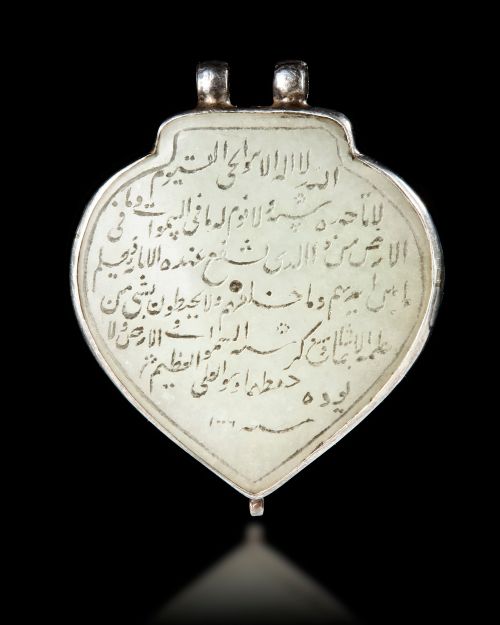 الله لا اله الا هو الحى القيوم
لا تاخذه سنة ولا نوم له ما فى السموات وما فى
الارض من ذا الذى يشفع عنده الا باذنه يعلم
ما بين ايديهم وما خلفهم ولا يحيطون بشى من
علمه الا بما شا وسع كرسيه السموات و الارض ولا
حفظهما وهو العلى العظيم
يوده
سنه ١٠٠٦